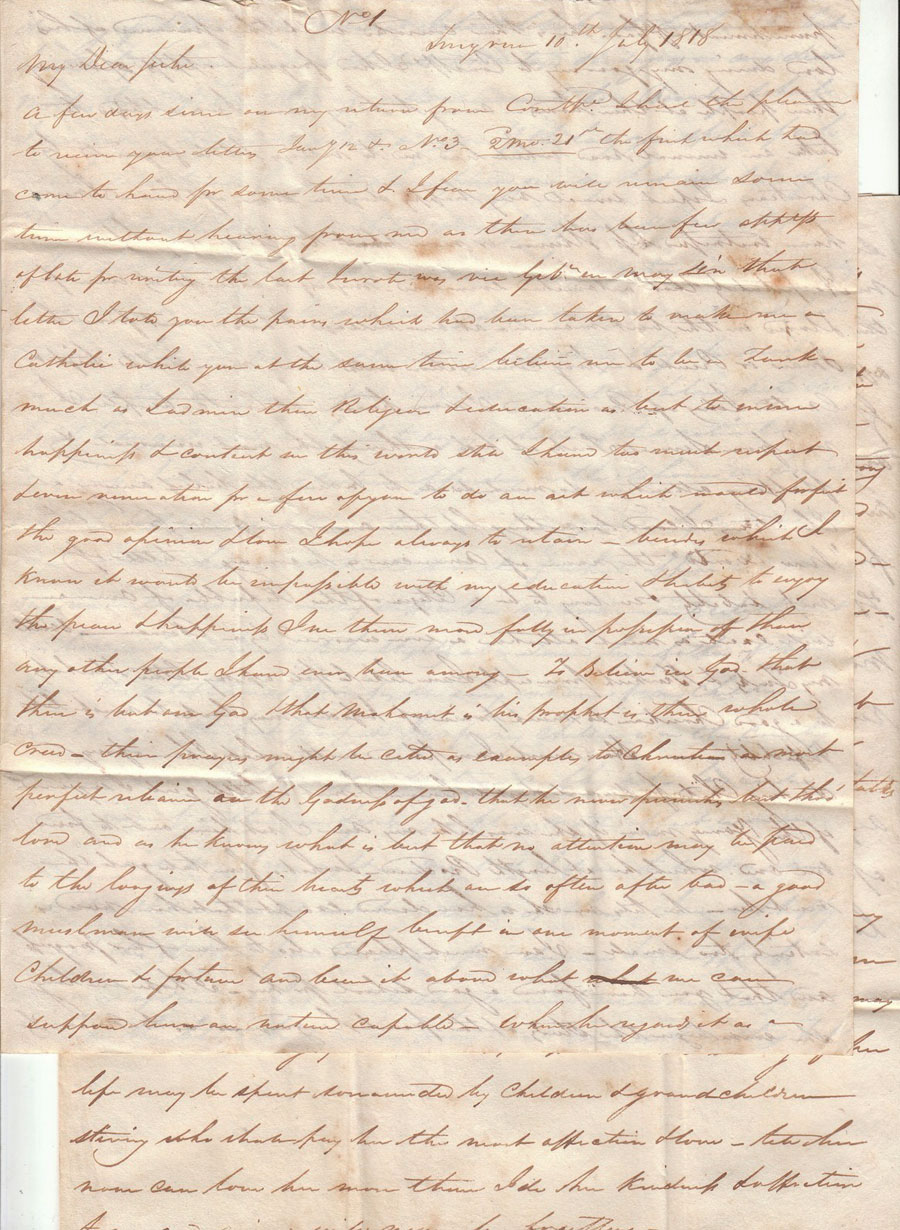 No 1
Smyrna 10th July 1818
My Dear
A few days since on my return from Constle I had the pleasure
to receive your letters Jany 12 & No 3 2 mo. 21st the first which had
come to hand for some time & I fear you will remain some
time without hearing from me as there has been few
of late for writing the last I wrote was via Gibr in May in that
letter I told you the pains which had been taken to make me a
Catholic while you at the same time believe me to be a Turk
much as I admire their Religion & education as best to insure
happiness & content in this world still I have too much respect
& even veneration for a few of you to do an act which would forfeit
the good opinion & love I hope always to retain – besides which I
know it would be impossible with my education & habits to enjoy
the peace & happiness I see them more fully in possession of than
any other people I have ever been among – To Believe in God that
there is but one God & that Mahomet is his prophet is their whole
creed – their prayers might be cited as examples to Christians a most
perfect reliance on the Godness of god – that he never punishes but
love and as he knows what is best that no attention may be paid
to the longings of their hearts which are so often after bad – a good
musslman will see himself bereft in one moment of wife
Children & fortune and bear it above what we can
suppose human nature capable – when he regards it as a
life may be spent surrounded by Children & grandchildren
who shall pay her the most affection & love – tell her
none can love her more than I do her kindness & affection
together